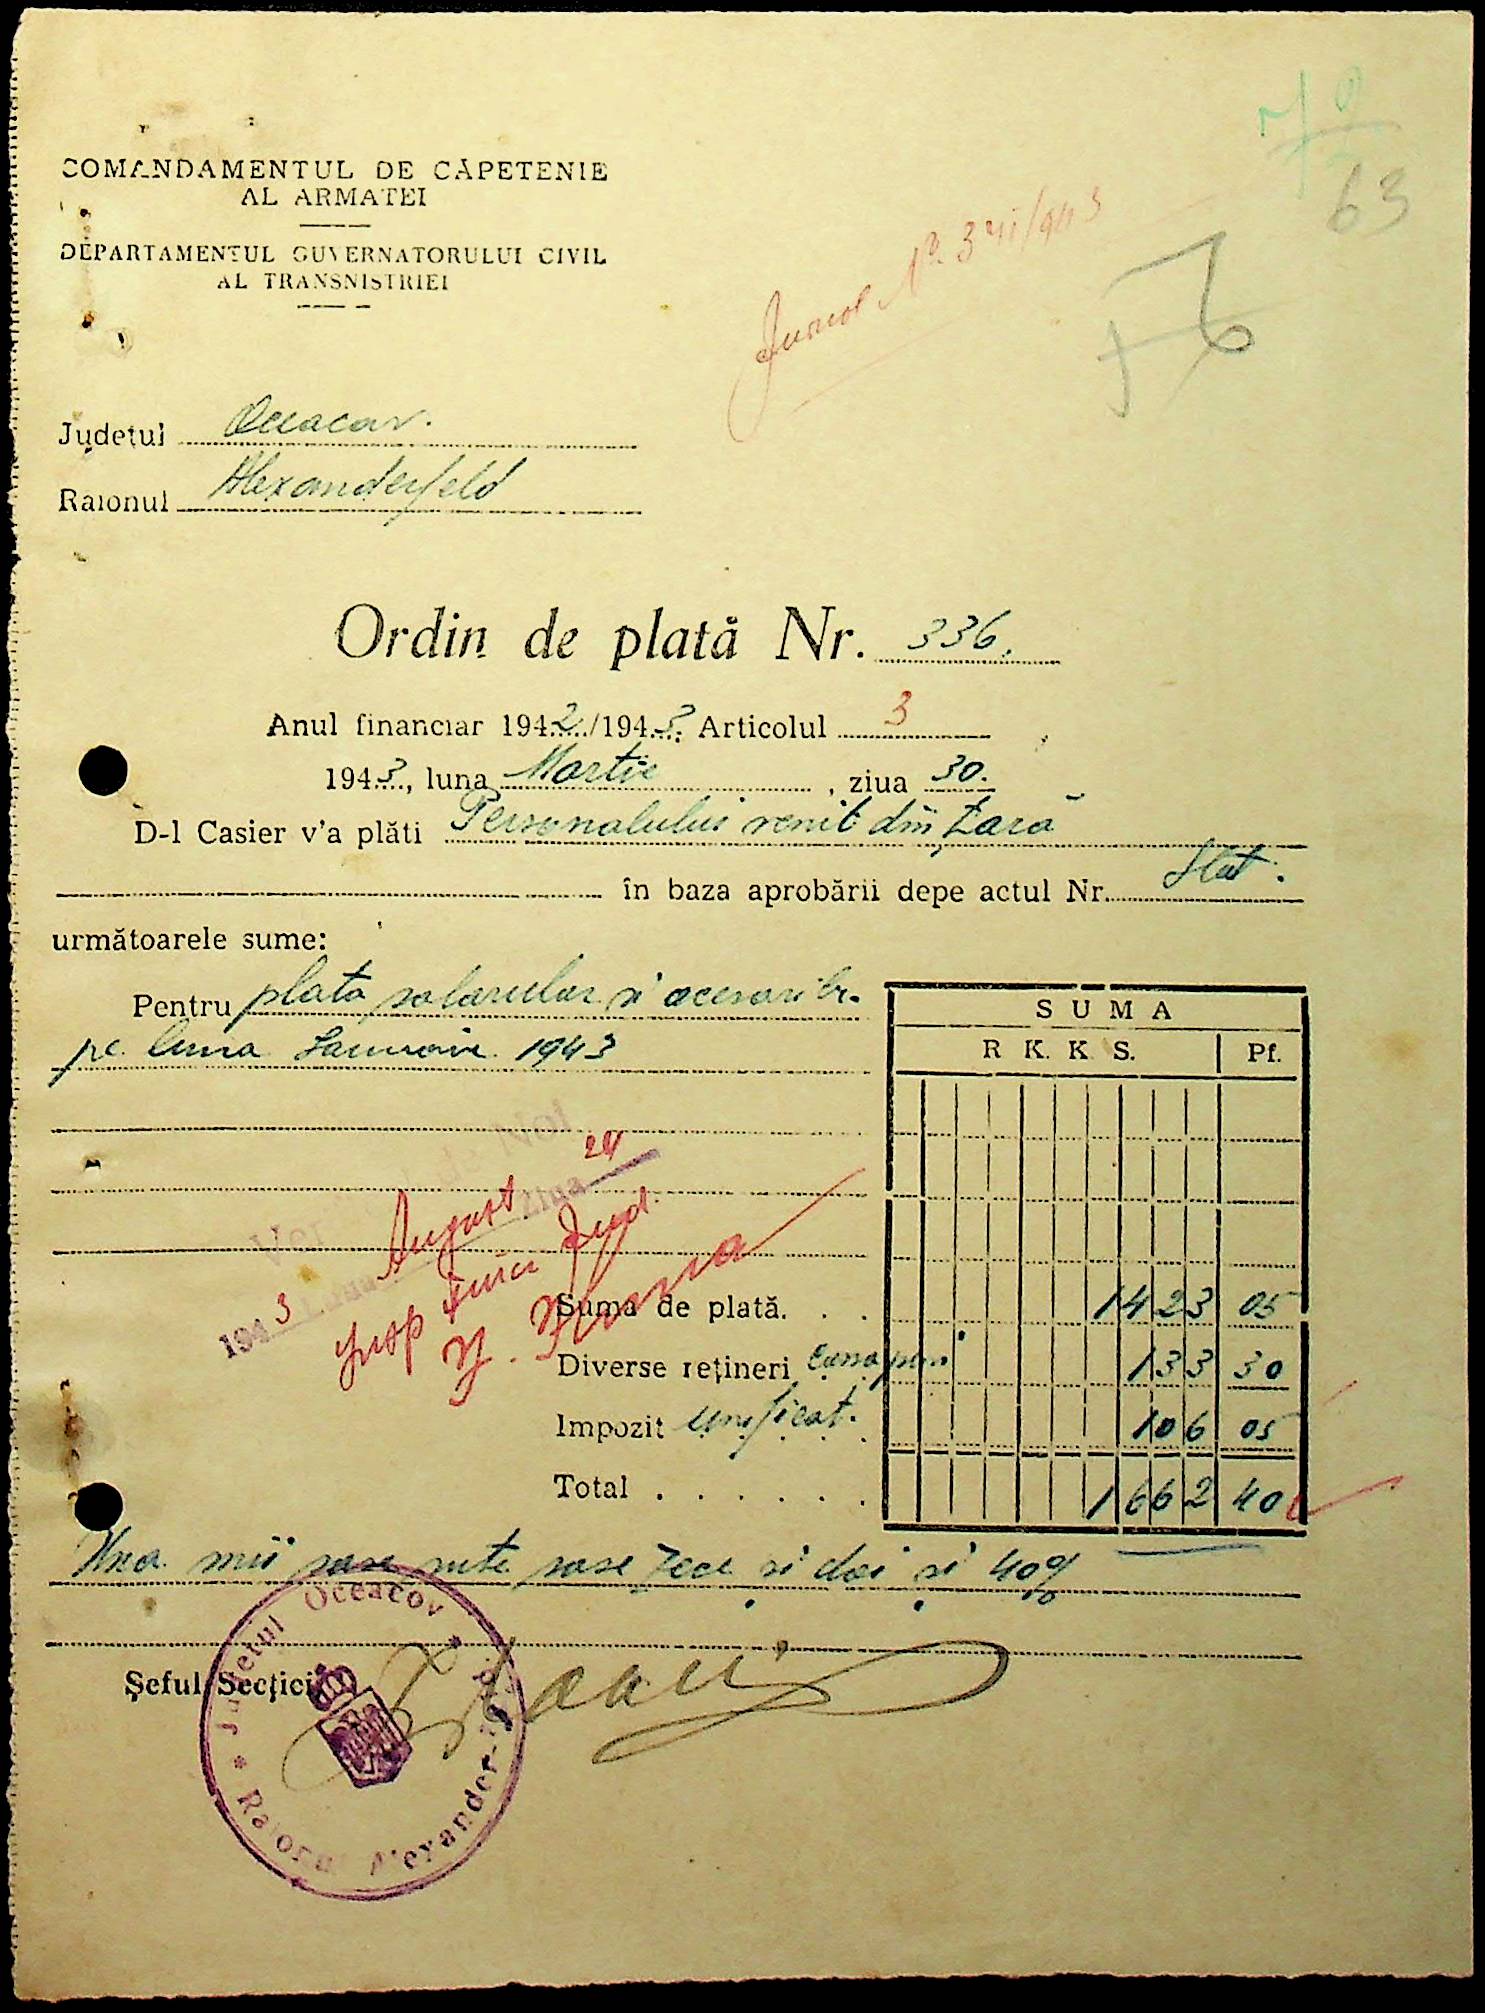 COMANDAMENTUL DE CĂPETENIE
AL ARMATEI
DEPARTAMENTUL GUVERNATORULUI CIVIL
AL TRANSNISTRIEI
63
Jurnal No 341/943
Județul Oceacov.
Raionul Alexanderfeld
Ordin de plată Nr. 336.
Anul financiar 1942/1943. Articolul 3
1943, luna Martie, ziua 30.
D-l Casier v'a plăti Personalului venit din Țară
în baza aprobării depe actul Nr. Stat.
următoarele sume:
Pentru plata salariilor și acesoriile.
pe luna Ianuarie 1943
SUMA
R K. K S. Pf.
Ver Noi
1943 Luna August ziua 24
Insp Jud.
Suma de plată. . . 1423 05
Diverse rețineri 133 30
Impozit unificat. 106 05
Total . . . . . . 1662 40
Una mii șase sute șase zece și doi și 40%
Șeful Secției
* Județul Oceacov * Raionul Alexander-Feld